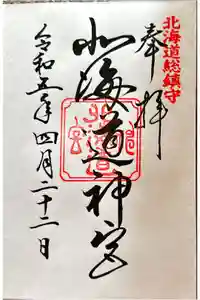 北海道総鎮守
奉拝
北海道神宮
令和五年四月二十二日